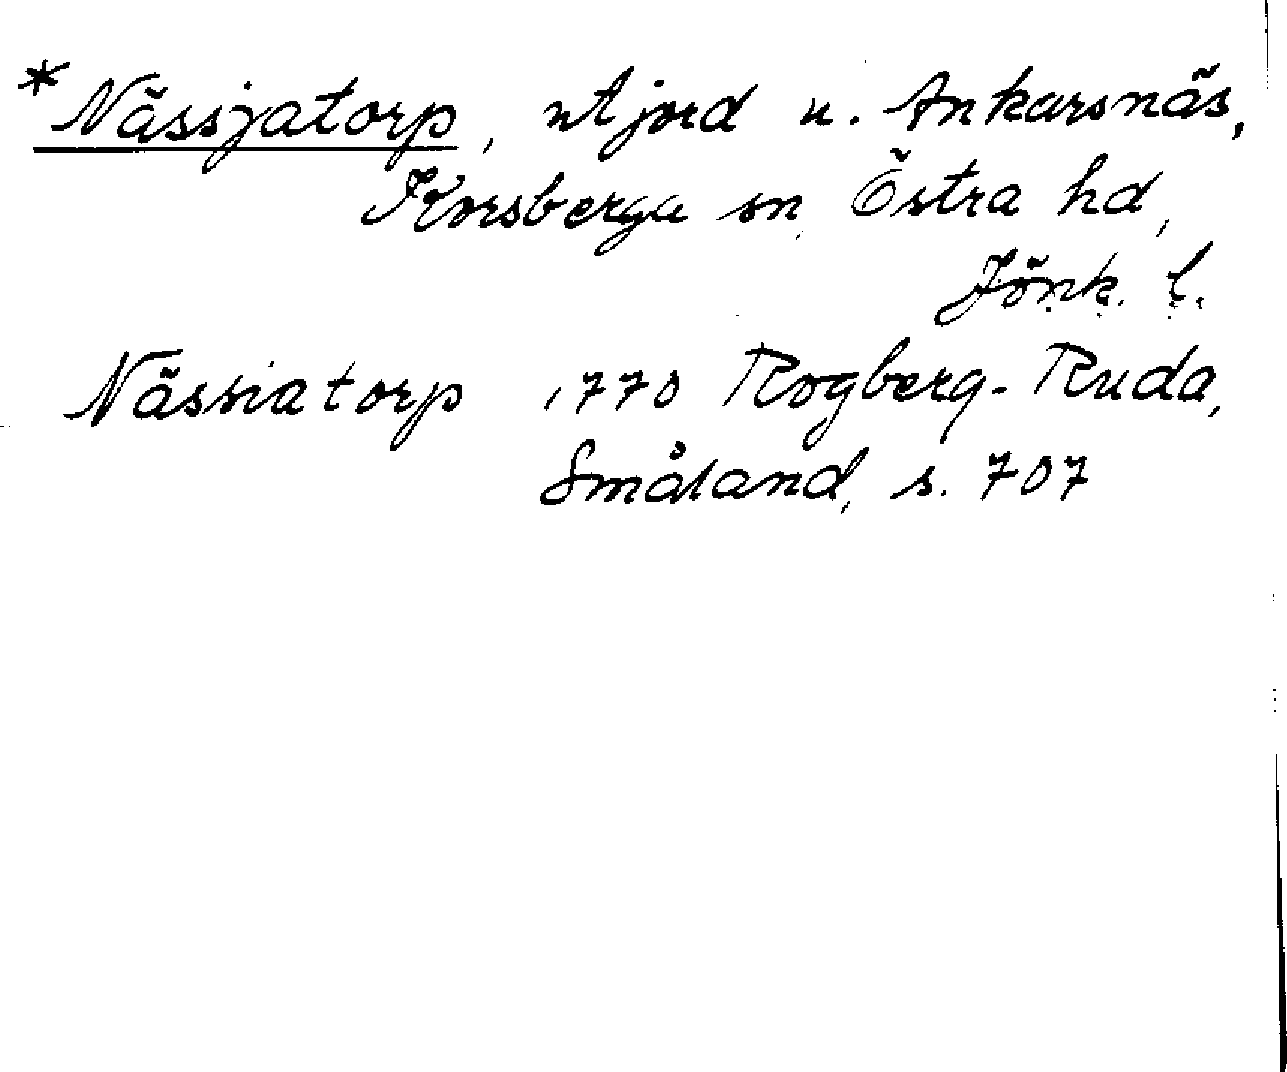 * Nässjatorp, utjord u. Ankarsnäs,
Korsberga sn, Östra hd,
Jönk. l.
Nässiatorp 1770 Rogberg-Ruda,
Småland, s. 707